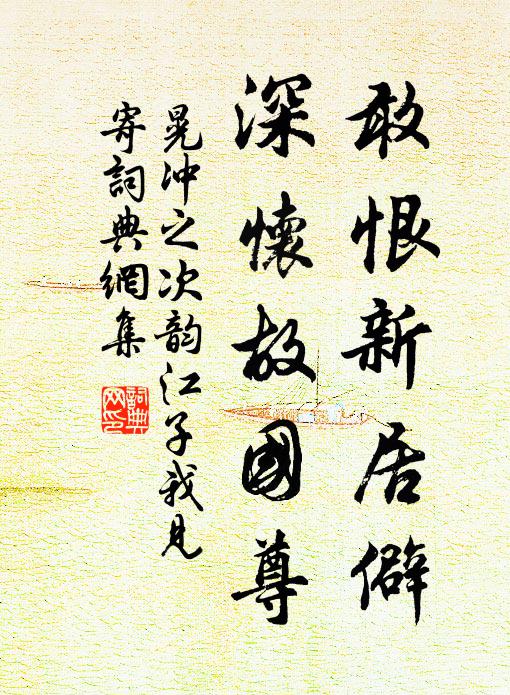 敢恨新居僻
深懷故國尊
晁冲之次韵江子我見
寄詞典網集
詞典
网印